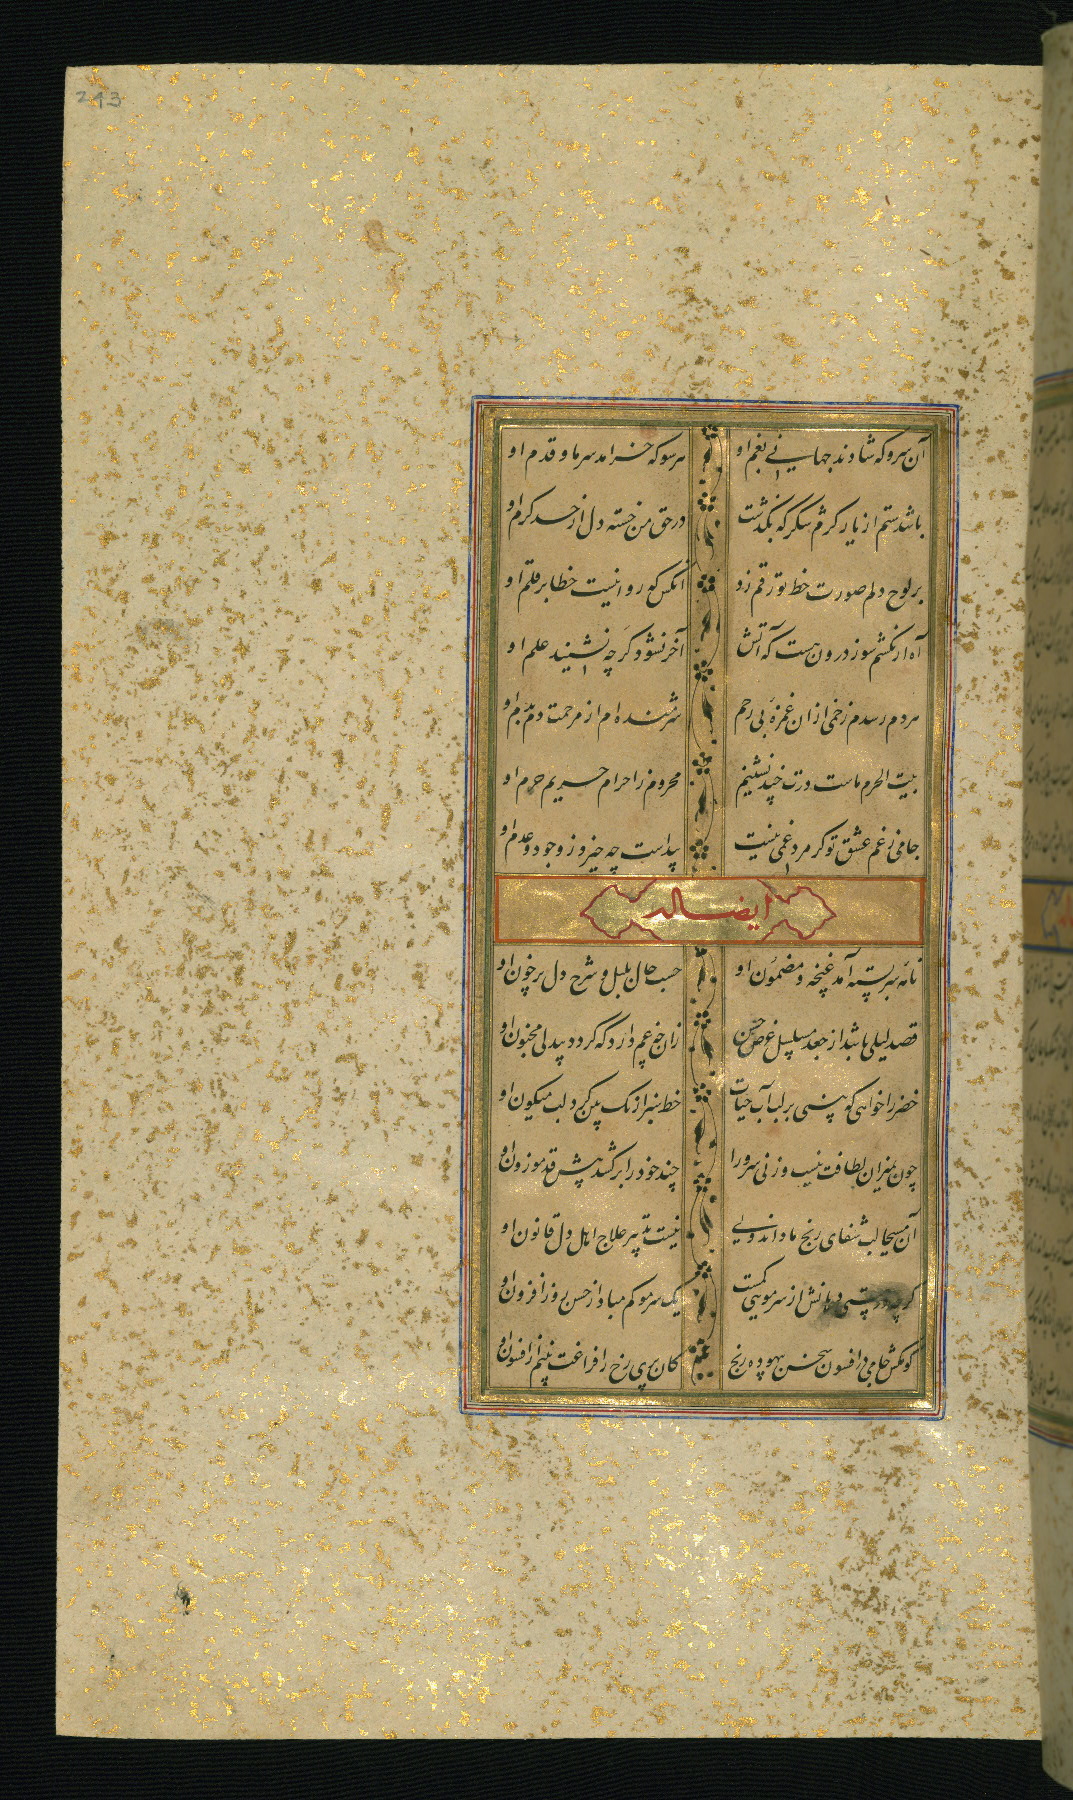 243
آن سرو که شادند جهانی بغم او هر سو که خرامد سر ما و قدم او
باشد ستم از یار کرم شکر که نگذشت در حق من خسته دل از حد کرم او
بر لوح دلم صورت خط تو رقم زد آنکس که روا نیست خطا بر قلم او
آه ار نکشم سوز درون هست که آتش آخر نشود گر چه نشیند علم او
مردم رسدم زخمی ازان غمزه بی رحم شرمنده ام از مرحمت دم بدم او
بیت الحرم ماست درت چند نشینیم محروم ز احرام حریم حرم او
جامی ز غم عشق تو گر مرد غمی نیست پیداست چه خیزد ز وجود و عدم او
ایضا له
نامه سربسته آمد غنچه و مضمون او حسب حال بلبل و شرح دل پرخون او
قصد لیلی باشد از جعد مسلسل عرض حسن زان چه غم دارد که گردد بیدلی مجنون او
خضر را خواهی که بینی بر لب آب حیات خط سبز از مشک بین گرد لب میگون او
چون بمیزان لطافت نیست وزنی سرو را چند خود را برکشد پیش قد موزون او
آن مسیحا لب شفای رنج ما داند ولی نیست تدبیر علاج اهل دل قانون او
گر چه در دهانش از سر مویی کمست یک سر مو کم مباد از حسن روزافزون او
کو مکش جامی در افسون سخن بیهوده رنج کان پری رخ را فراغت بینم از افسون او